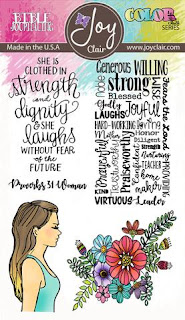 BIBLE
JOURNALING
Joy
Clair
COLOR
SERIES
Made in the U.S.A
www.joyclair.com
SHE IS
CLOTHED IN
strength
and
dignity
& she
laughs
WITHOUT FEAR
OF THE
FUTURE
Proverbs 31 Woman
Generous WILLING
Strong
Blessed
Godly
LAUGHS
Joyful
HARD-WORKING
Loving
Honor
Fears the Lord
Prayerful
Trustworthy
Praiseworthy
Confident
Diligent
Strength
Nurturing
TEACHER
home
maker
KIND
VIRTUOUS Leader